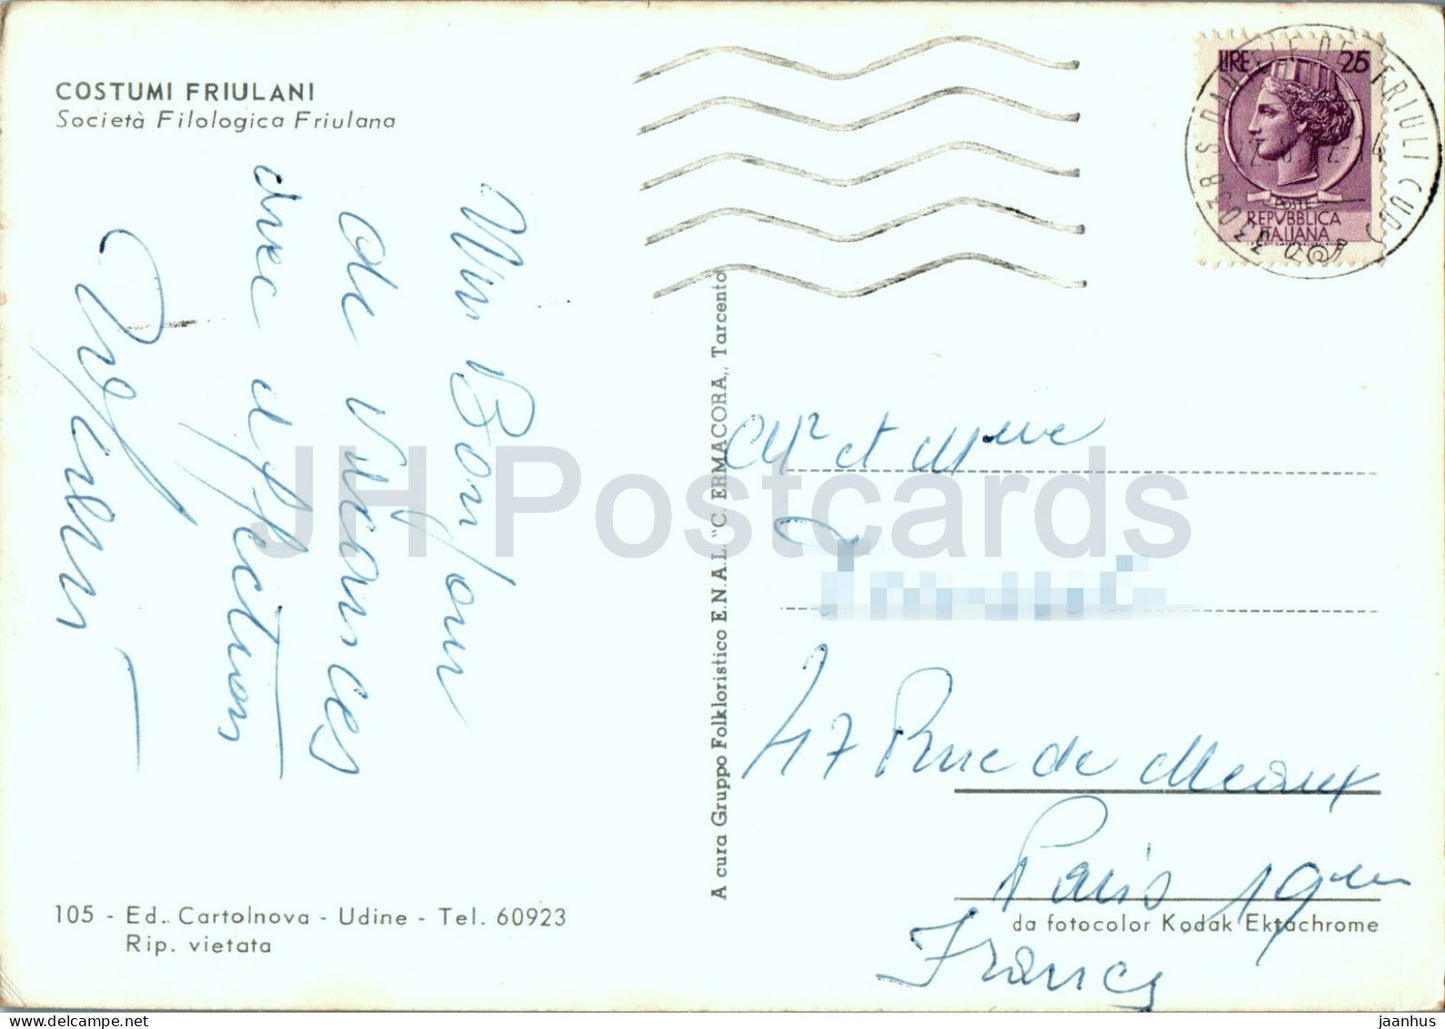 COSTUMI FRIULANI
Società Filologica Friulana
Un Bonjour
de Vacances
avec affection
105 - Ed. Cartolnova - Udine - Tel. 60923
Rip. vietata
A cura Gruppo Folkloristico E.N.A.L. "C. ERMACORA,, Tarcento
LIRE 25
POSTE
REPVBBLICA
ITALIANA
33038 S. DANIELE DEL FRIULI (UD)
Mr et Mme
47 Rue de Meaux
Paris 19eme
France
da fotocolor Kodak Ektachrome
JH Postcards
jh-postcards.com
jaanhus